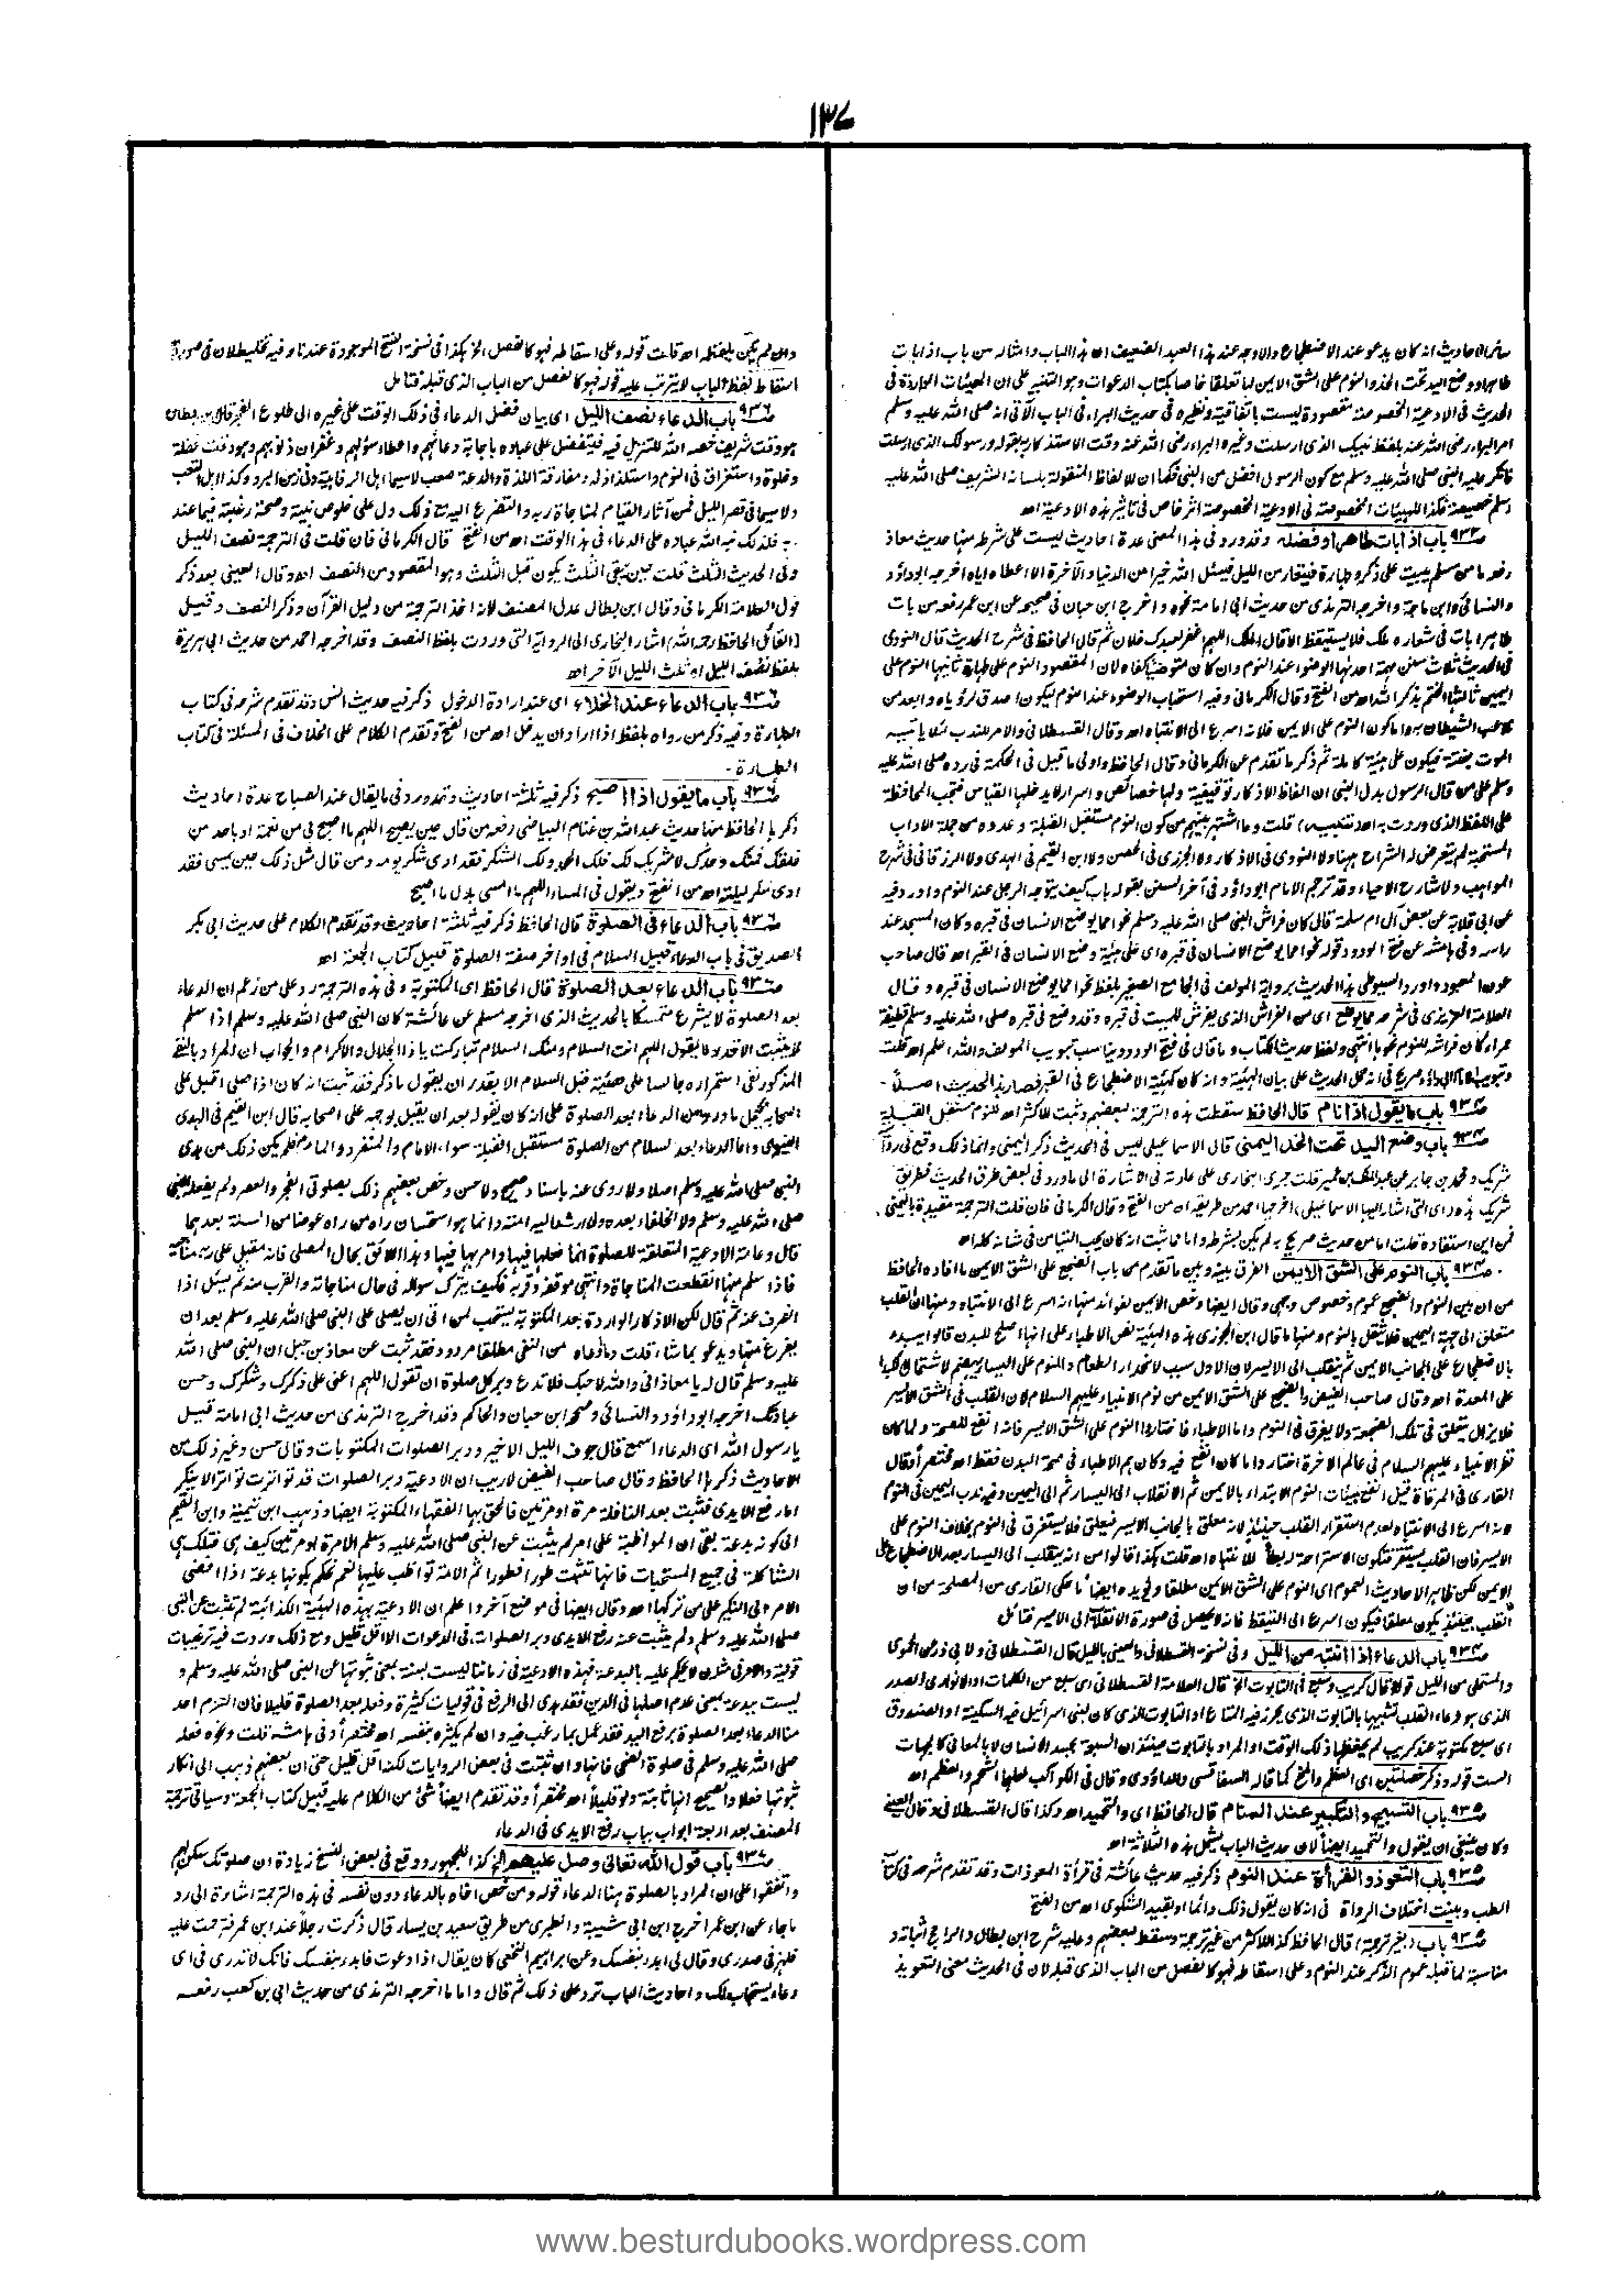 ١٣٧
سائر الاحاديث انه كان يدعو عند الاضطجاع والاوجه عند هذا العبد الضعيف ان هذا الباب وامثاله من باب اذا بات
طاهرا ووضع اليد تحت الخد والنوم على الشق الايمن لها تعلقا خاصا بكتاب الدعوات وهو التنبيه على ان الهيئات الواردة فى
الحديث فى الادعية المخصوصة مقصودة ليست باتفاقية ونظيره فى حديث البراء فى الباب الآتى انه صلى الله عليه وسلم
امر البراء رضى الله عنه بلفظ نبيك الذى ارسلت وغيره البراء رضى الله عنه وقت الاستذكار بقوله ورسولك الذى ارسلت
فانكر عليه النبى صلى الله عليه وسلم مع كون الرسول افضل من النبى فكما ان للالفاظ المنقولة بلسانه الشريف صلى الله عليه
وسلم خصيصة فكذا للهيئات المخصوصة فى الادعية المخصوصة اثر خاص فى تاثير هذه الادعية اه
ص٩٣٣ باب اذا بات طاهرا وفضله وقد ورد فى هذا المعنى عدة احاديث ليست على شرطه منها حديث معاذ
رفعه ما من مسلم يبيت على ذكر وطهارة فيتعار من الليل فيسئل الله خيرا من الدنيا والآخرة الا اعطاه اياه اخرجه ابوداؤد
والنسائى وابن ماجة واخرجه الترمذى من حديث ابى امامة نحوه واخرج ابن حبان فى صحيحه عن ابن عمر رفعه من بات
طاهرا بات فى شعاره ملك فلا يستيقظ الا قال الملك اللهم اغفر لعبدك فلان ثم قال الحافظ فى شرح الحديث قال النووى
فى الحديث ثلاث سنن مهمة احدها الوضوء عند النوم وان كان متوضئا كفاه لان المقصود النوم على طهارة ثانيها النوم على
اليمين ثالثها الختم بذكر الله اه من الفتح وقال الكرمانى وفيه استحباب الوضوء عند النوم ليكون اصدق لرؤياه وابعد من
تلاعب الشيطان به واما كون النوم على الايمن فلانه اسرع الى الانتباه اه وقال القسطلانى والامر للندب لئلا ياتيه
الموت بغتة فيكون على هيئة كاملة ثم ذكر ما تقدم عن الكرمانى وقال الحافظ واولى ما قيل فى الحكمة فى رده صلى الله عليه
وسلم على من قال الرسول بدل النبى ان الفاظ الاذكار توقيفية ولها خصائص واسرار لا يدخلها القياس فتجب المحافظة
على اللفظ الذى وردت به اه قلت وما اشتهر بينهم من كون النوم مستقبل القبلة وعدوه من جملة الاداب
المستحبة لم يتعرض له الشراح ههنا ولا النووى فى الاذكار ولا الجزرى فى الحصن ولا ابن القيم فى الهدى ولا الزرقانى فى شرح
المواهب ولا شارح الاحياء وقد ترجم الامام ابوداؤد فى آخر السنن بقوله باب كيف يتوجه الرجل عند النوم واورد فيه
عن ابى قلابة عن بعض آل ام سلمة قال كان فراش النبى صلى الله عليه وسلم نحوا مما يوضع الانسان فى قبره وكان المسجد عند
راسه وفى هامشه عن فتح الودود قوله نحوا مما يوضع الانسان فى قبره اى على هيئة وضع الانسان فى القبر اه قال صاحب
عون المعبود واورد السيوطى هذا الحديث برواية المولف فى الجامع الصغير بلفظ نحوا مما يوضع الانسان فى قبره وقال
العلامة العزيزى فى شرحه مما يوضع اى من الفراش الذى يفرش للميت فى قبره وقد وضع فى قبره صلى الله عليه وسلم قطيفة
حمراء كان فراشه للنوم نحوها انتهى ولفظ حديث الكتاب وما قال فى فتح الودود يناسب تبويب المولف والله اعلم اه قلت
وتبويب الامام ابى داؤد صريح فى انه حمل الحديث على بيان الهيئة وانه كان كهيئة الاضطجاع فى القبر فصار هذا الحديث اصلاً۔
ص٩٣٤ باب ما يقول اذا نام قال الحافظ سقطت هذه الترجمة لبعضهم وثبت للاكثر اه للنوم مستقبل القبلة
ص٩٣٤ باب وضع اليد تحت الخد اليمنى قال الاسماعيلى ليس فى الحديث ذكر اليمنى وانما ذلك وقع فى رواية
شريك ومحمد بن جابر عن عبدالملك بن عمير قلت جرى البخارى على عادته فى الاشارة الى ما ورد فى بعض طرق الحديث فطريق
شريك هذه (اى التى اشار اليها الاسماعيلى) اخرجها احمد من طريقه اه من الفتح وقال الكرمانى فان قلت الترجمة مقيدة باليمنى
فمن اين استفاده قلت اما من حديث صريح به لم يكن بشرطه واما مما ثبت انه كان يحب التيامن فى شانه كله اه
ص٩٣٤ باب النوم على الشق الايمن الفرق بينه وبين ما تقدم من باب الضجع على الشق الايمن ما افاده الحافظ
من ان بين النوم والضجع عموم وخصوص وجهى وقال ايضا وخص الايمن لفوائد منها انه اسرع الى الانتباه ومنها ان القلب
متعلق الى جهة اليمين فلا يثقل بالنوم ومنها ما قال ابن الجوزى هذه الهيئة نص الاطباء على انها اصلح للبدن قالوا يبدء
بالاضطجاع على الجانب الايمن ثم ينقلب الى الايسر لان الاول سبب لانحدار الطعام والنوم على اليسار يهضم لاشتمال الكبد
على المعدة اه وقال صاحب الفيض والضجع على الشق الايمن من نوم الانبياء عليهم السلام لان القلب فى الشق الايسر
فلا يزال يتعلق فى تلك الضجعة ولا يغرق فى النوم واما الاطباء فاختاروا النوم على الشق الايسر فانه انفع للصحة ولما كان
نظر الانبياء عليهم السلام فى عالم الاخرة اختاروا ما كان انفع فيه وكان هم الاطباء فى صحة البدن فقط اه مختصراً وقال
القارى فى المرقاة قيل انفع هيئات النوم الابتداء بالايمن ثم الانقلاب الى اليسار ثم الى اليمين وفيه ندب اليمين فى النوم
لانه اسرع الى الانتباه لعدم استقرار القلب حينئذ لانه معلق بالجانب الايسر فيعلق فلا يستغرق فى النوم بخلاف النوم على
الايسر فان القلب يستقر فتكون الاستراحة له بطأ للانتباه اه قلت هكذا قالوا من انه ينقلب الى اليسار بعد الاضطجاع على
الايمن لكن ظاهر الاحاديث العموم اى النوم على الشق الايمن مطلقا ويؤيده ايضا ما حكى القارى من المصلحة من ان
القلب حينئذ يكون معلقا فيكون اسرع الى التيقظ فانه لا يحصل فى صورة الانقلاب الى الايسر فتامل
ص٩٣٤ باب الدعاء اذا انتبه من الليل وفى نسخة القسطلانى والعينى بالليل قال القسطلانى ولابى ذر عن الحموى
والمستملى من الليل قوله قال كريب وسبع فى التابوت الخ قال العلامة القسطلانى اى سبع من الكلمات او الانوار فى الصدر
الذى هو وعاء القلب تشبيها بالتابوت الذى يحرز فيه المتاع او التابوت الذى كان لبنى اسرائيل فيه السكينة او الصندوق
اى سبع مكتوبة عند كريب لم يحفظها ذلك الوقت او المراد بالتابوت حينئذ ان السبعة بجسد الانسان لا بالمعانى كالجهات
الست قوله وذكر خصلتين اى العظم والمخ كما قاله السفاقسى والداؤدى وقال فى الكواكب لعلهما الشحم والعظم اه
ص٩٣٥ باب التسبيح والتكبير عند المنام قال الحافظ اى والتحميد اه وكذا قال القسطلانى وقال العينى
وكان ينبغى ان يقول والتحميد ايضاً لان حديث الباب يشمل هذه الثلاثة اه
ص٩٣٥ باب التعوذ والقرأة عند النوم ذكر فيه حديث عائشة فى قرأة المعوذات وقد تقدم شرحه فى كتاب
الطب وبينت اختلاف الرواة فى انه كان يقول ذلك دائما او بقيد الشكوى اه من الفتح
ص٩٣٥ باب (بغير ترجمة) قال الحافظ كذا للاكثر من غير ترجمة وسقط لبعضهم وعليه شرح ابن بطال والراجح اثباته و
مناسبته لما قبله عموم الذكر عند النوم وعلى اسقاطه فهو كالفصل من الباب الذى قبله لان فى الحديث معنى التعويذ
وان لم يكن بلفظه اه قلت قوله وعلى اسقاطه فهو كالفصل الخ هكذا فى نسخة الفتح الموجودة عندنا وفيه تخليط لان فى صورة
اسقاط لفظ الباب لا يترتب عليه قوله فهو كالفصل من الباب الذى قبله فتامل
ص٩٣٦ باب الدعاء نصف الليل اى بيان فضل الدعاء فى ذلك الوقت على غيره الى طلوع الفجر قال ابن بطال
هو وقت شريف خصه الله بالتنزيل فيه فيتفضل على عباده باجابة دعائهم واعطاء سؤلهم وغفران ذنوبهم وهو وقت غفلة
وخلوة واستغراق فى النوم واستلذاذ له ومفارقة اللذة والدعة صعب لاسيما اهل الرفاهية وفى زمن البرد وكذا اهل التعب
ولاسيما فى قصر الليل فمن آثر القيام لمناجاة ربه والتضرع اليه مع ذلك دل على خلوص نيته وصحة رغبته فيما عند
ربه فلذلك نبه الله عباده على الدعاء فى هذا الوقت اه من الفتح قال الكرمانى فان قلت فى الترجمة نصف الليل
وفى الحديث الثلث قلت حين يبقى الثلث يكون قبل الثلث وهو المقصود من النصف اه وقال العينى بعد ذكر
قول العلامة الكرمانى وقال ابن بطال عدل المصنف لانه اخذ الترجمة من دليل القرآن وذكر النصف وقيل
(القائل الحافظ رحمه الله) اشار البخارى الى الرواية التى وردت بلفظ النصف وقد اخرجه احمد من حديث ابى هريرة
بلفظ نصف الليل او ثلث الليل الآخر اه
ص٩٣٦ باب الدعاء عند الخلاء اى عند ارادة الدخول ذكر فيه حديث انس وقد تقدم شرحه فى كتاب
الطهارة وفيه ذكر من رواه بلفظ اذا اراد ان يدخل اه من الفتح وتقدم الكلام على الخلاف فى المسئلة فى كتاب
الطهارة۔
ص٩٣٦ باب ما يقول اذا اصبح ذكر فيه ثلثة احاديث وقد ورد فى ما يقال عند الصباح عدة احاديث
ذكرها الحافظ منها حديث عبد الله بن غنام البياضى رفعه من قال حين يصبح اللهم ما اصبح بى من نعمة او باحد من
خلقك فمنك وحدك لا شريك لك فلك الحمد ولك الشكر فقد ادى شكر يومه ومن قال مثل ذلك حين يمسى فقد
ادى شكر ليلته اه من الفتح ويقول فى المساء اللهم ما امسى بدل ما اصبح
ص٩٣٦ باب الدعاء فى الصلوة قال الحافظ ذكر فيه ثلثة احاديث وقد تقدم الكلام على حديث ابى بكر
الصديق فى باب الدعاء قبيل السلام فى اواخر صفة الصلوة قبيل كتاب الجمعة اه
ص٩٣٦ باب الدعاء بعد الصلوة قال الحافظ اى المكتوبة وفى هذه الترجمة رد على من زعم ان الدعاء
بعد الصلوة لا يشرع متمسكا بالحديث الذى اخرجه مسلم عن عائشة كان النبى صلى الله عليه وسلم اذا سلم
لا يثبت الا قدر ما يقول اللهم انت السلام ومنك السلام تباركت يا ذا الجلال والاكرام والجواب ان المراد بالنفى
المذكور نفى استمراره جالسا على هيئته قبل السلام الا بقدر ان يقول ما ذكر فقد ثبت انه كان اذا صلى اقبل على
اصحابه فيحمل ما ورد من الدعاء بعد الصلوة على انه كان يقوله بعد ان يقبل بوجهه على اصحابه قال ابن القيم فى الهدى
النبوى واما الدعاء بعد السلام من الصلوة مستقبل القبلة سواء الامام والمنفرد والماموم فلم يكن ذلك من هدى
النبى صلى الله عليه وسلم اصلا ولا روى عنه باسناد صحيح ولا حسن وخص بعضهم ذلك بصلوتى الفجر والعصر ولم يفعله النبى
صلى الله عليه وسلم ولا الخلفاء بعده ولا ارشد اليه امته وانما هو استحسان راه من راه عوضا من السنة بعدهما
قال وعامة الادعية المتعلقة للصلوة انما فعلها فيها وامر بها فيها وهذا اللائق بحال المصلى فانه مقبل على ربه مناجيه
فاذا سلم منها انقطعت المناجاة وانتهى موقفه وقربه فكيف يترك سواله فى حال مناجاته والقرب منه ثم يسئل اذا
انصرف عنه ثم قال لكن الاذكار الواردة بعد المكتوبة يستحب لمن اتى بها ان يصلى على النبى صلى الله عليه وسلم بعد ان
يفرغ منها ويدعو بما شاء قلت وما ادعاه من النفى مطلقا مردود فقد ثبت عن معاذ بن جبل ان النبى صلى الله
عليه وسلم قال له يا معاذ انى والله لاحبك فلا تدع دبر كل صلوة ان تقول اللهم اعنى على ذكرك وشكرك وحسن
عبادتك اخرجه ابوداؤد والنسائى وصححه ابن حبان والحاكم وقد اخرج الترمذى من حديث ابى امامة قيل
يا رسول الله اى الدعاء اسمع قال جوف الليل الاخير ودبر الصلوات المكتوبات وقال حسن وغير ذلك من
الاحاديث ذكرها الحافظ وقال صاحب الفيض لا ريب ان الادعية دبر الصلوات قد تواترت تواترا لا ينكر
اما رفع الايدى فثبت بعد النافلة مرة او مرتين فالحق بها الفقهاء المكتوبة ايضا وذهب ابن تيمية وابن القيم
الى كونه بدعة بقى ان المواظبة على امر لم يثبت عن النبى صلى الله عليه وسلم الا مرة او مرتين كيف هى فتلك هى
الشاكلة فى جميع المستحبات فانها تثبت طورا فطورا ثم الامة تواظب عليها نعم نحكم بكونها بدعة اذا افضى
الامر الى النكير على من تركها اه وقال ايضا فى موضع آخر واعلم ان الادعية بهذه الهيئة الكذائية لم تثبت عن النبى
صلى الله عليه وسلم ولم يثبت عنه رفع الايدى دبر الصلوات فى الدعوات الا اقل قليل ومع ذلك وردت فيه ترغيبات
قولية والامر فى مثله ان لا يحكم عليه بالبدعة فهذه الادعية فى زماننا ليست بسنة بمعنى ثبوتها عن النبى صلى الله عليه وسلم و
ليست ببدعة بمعنى عدم اصلها فى الدين فقد هدى الى الرفع فى قوليات كثيرة وفعله بعد الصلوة قليلا فان التزم احد
منا الدعاء بعد الصلوة برفع اليد فقد عمل بما رغب فيه وان لم يكثره بنفسه اه مختصراً وفى هامشه قلت ونحوه فعله
صلى الله عليه وسلم فى صلوة الضحى فانها وان ثبتت فى بعض الروايات لكنه اقل قليل حتى ان بعضهم ذهب الى انكار
ثبوتها فعلا والصحيح انها ثابتة ولو قليلاً اه مختصراً وقد تقدم ايضاً شئ من الكلام عليه قبيل كتاب الجمعة وسياتى ترجمة
المصنف بعد اربعة ابواب بباب رفع الايدى فى الدعاء
ص٩٣٧ باب قول الله تعالى وصل عليهم الخ كذا للجمهور ووقع فى بعض النسخ زيادة ان صلوتك سكن لهم
واتفقوا على ان المراد بالصلوة هنا الدعاء قوله ومن خص اخاه بالدعاء دون نفسه فى هذه الترجمة اشارة الى رد
ما جاء عن ابن عمر اخرج ابن ابى شيبة والطبرى من طريق سعيد بن يسار قال ذكرت رجلاً عند ابن عمر فترحمت عليه
فلهز فى صدرى وقال لى ابدء بنفسك وعن ابراهيم النخعى كان يقال اذا دعوت فابدء بنفسك فانك لا تدرى فى اى
دعاء يستجاب لك واحاديث الباب ترد على ذلك ثم قال واما ما اخرجه الترمذى من حديث ابى بن كعب رفعه
www.besturdubooks.wordpress.com